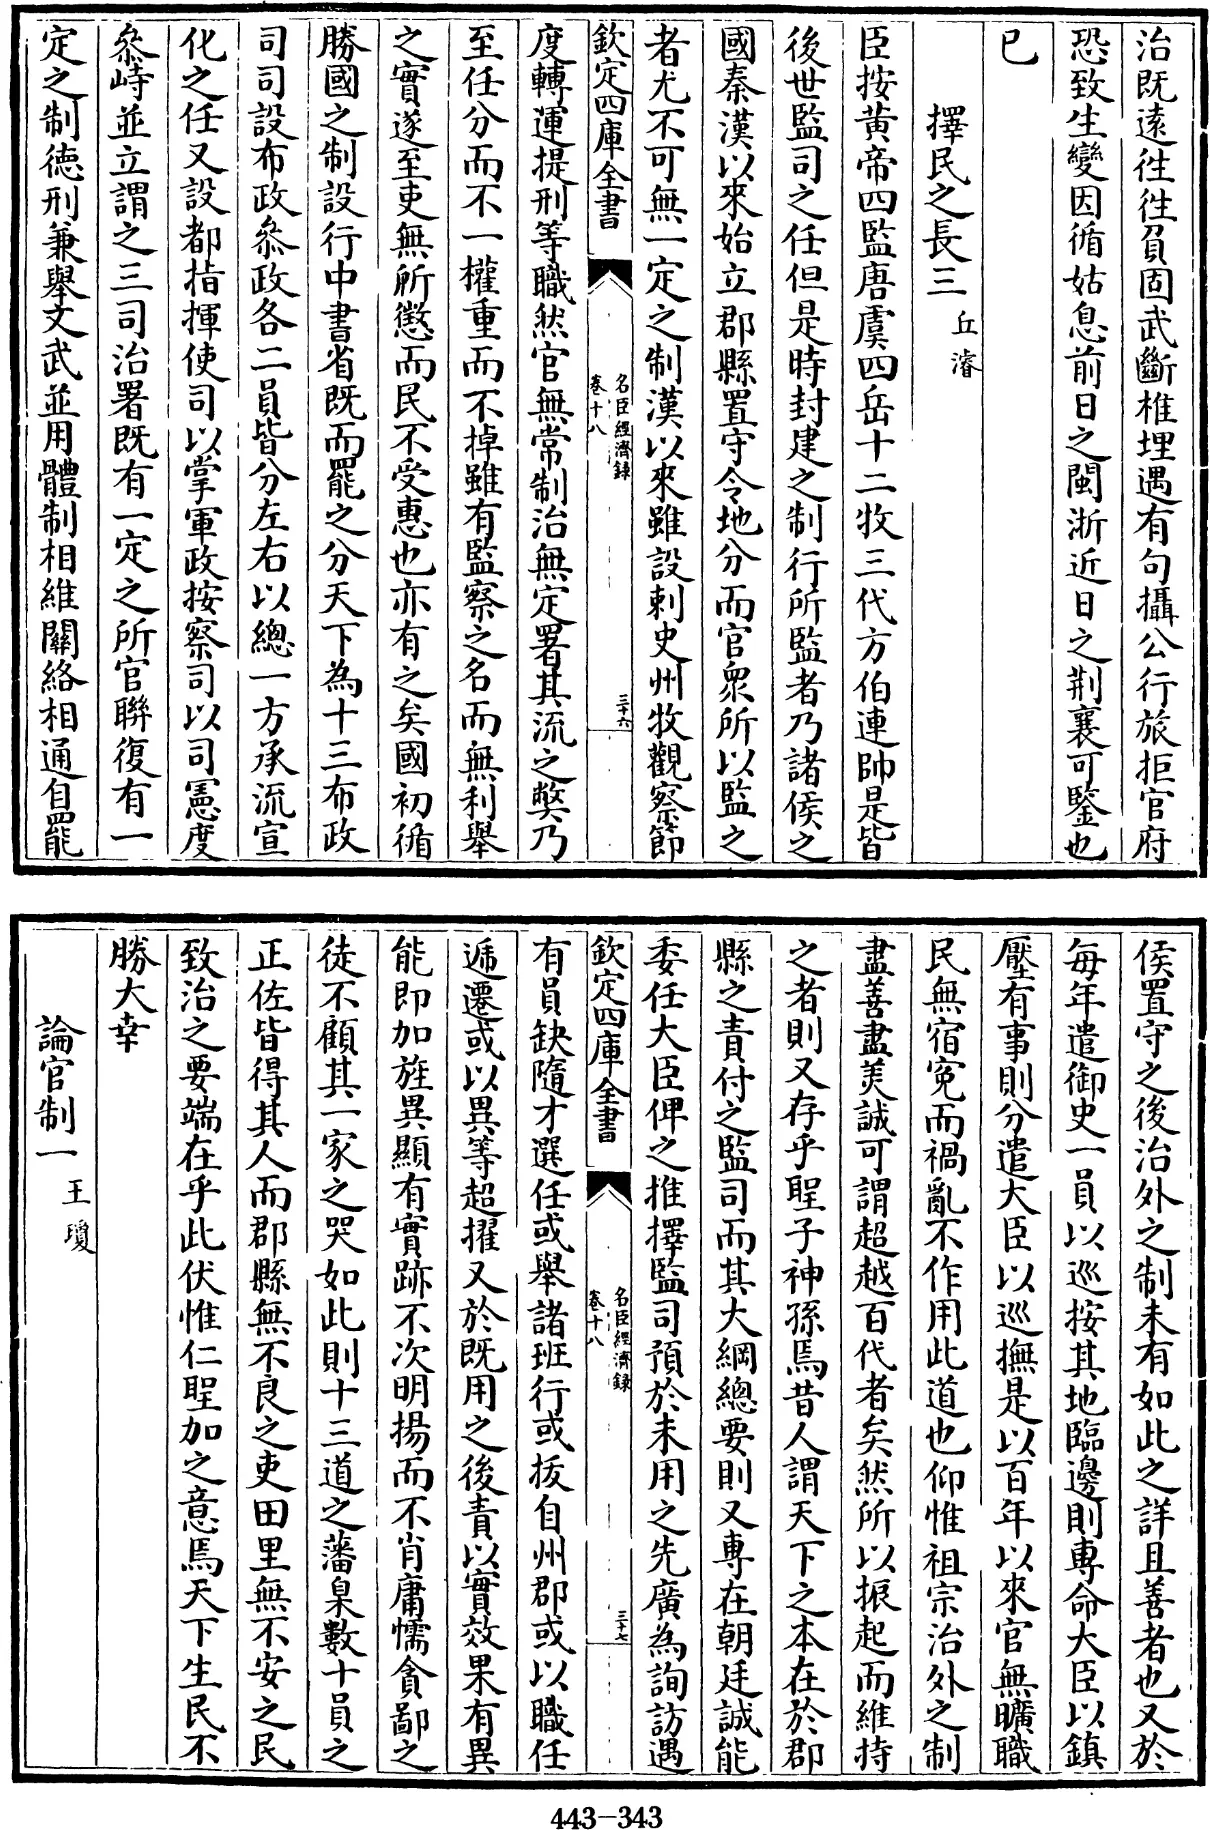 治既遠徃徃負固武斷椎埋遇有句攝公行旅拒官府
恐致生變因循姑息前日之閩浙近日之荆襄可鑒也
已
擇民之長三 丘濬
臣按黄帝四監唐虞四岳十二牧三代方伯連帥是皆
後世監司之任但是時封建之制行所監者乃諸侯之
國秦漢以來始立郡縣置守令地分而官衆所以監之
者尤不可無一定之制漢以來雖設刺史州牧觀察節
欽定四庫全書
名臣經濟録
卷十八
三十六
度轉運提刑等職然官無常制治無定署其流之弊乃
至任分而不一權重而不掉雖有監察之名而無利舉
之實遂至吏無所懲而民不受惠也亦有之矣國初循
勝國之制設行中書省既而罷之分天下為十三布政
司司設布政叅政各二員皆分左右以總一方承流宣
化之任又設都指揮使司以掌軍政按察司以司憲度
叅峙並立謂之三司治署既有一定之所官聨復有一
定之制徳刑兼舉文武並用體制相維闗絡相通自罷
侯置守之後治外之制未有如此之詳且善者也又於
每年遣御史一員以巡按其地臨邊則専命大臣以鎮
壓有事則分遣大臣以巡撫是以百年以來官無曠職
民無宿寃而禍亂不作用此道也仰惟祖宗治外之制
盡善盡美誠可謂超越百代者矣然所以振起而維持
之者則又存乎聖子神孫焉昔人謂天下之本在於郡
縣之責付之監司而其大綱總要則又専在朝廷誠能
委任大臣俾之推擇監司預於未用之先廣為詢訪遇
欽定四庫全書
名臣經濟録
卷十八
三十七
有員缺隨才選任或舉諸班行或拔自州郡或以職任
遞遷或以異等超擢又於既用之後責以實效果有異
能即加旌異顯有實跡不次明揚而不肖庸懦貪鄙之
徒不顧其一家之哭如此則十三道之藩臬數十員之
正佐皆得其人而郡縣無不良之吏田里無不安之民
致治之要端在乎此伏惟仁聖加之意焉天下生民不
勝大幸
論官制一 王瓊
443-343